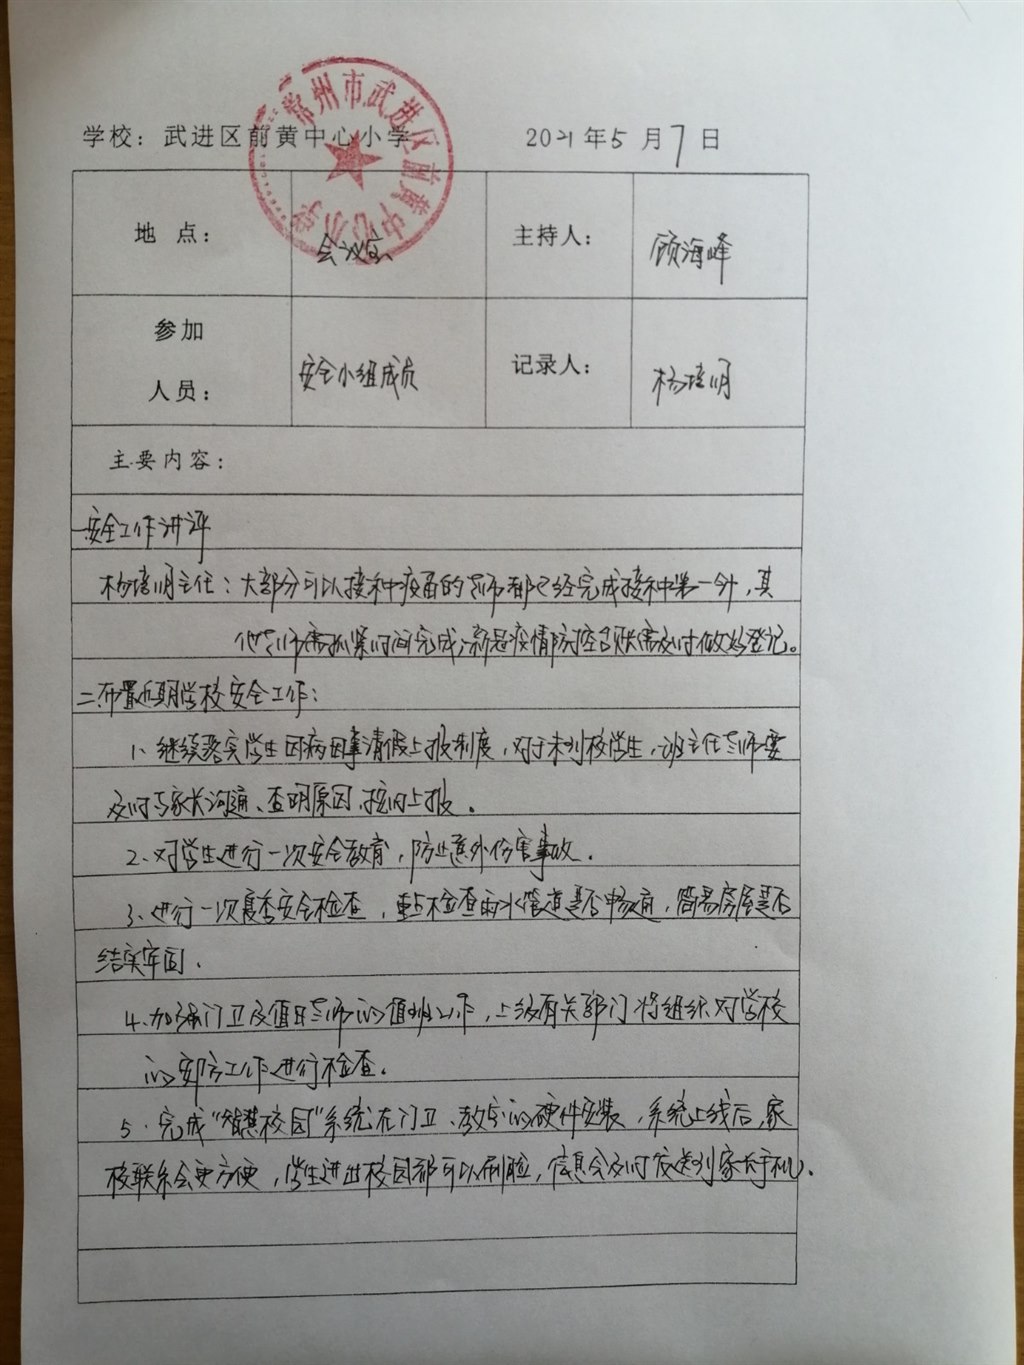 常州市武进区前黄中心小学
学校：武进区前黄中心小学 2021年5月7日
地点： 会议室 主持人： 顾海峰
参加
人员： 安全小组成员 记录人： 杨培明
主要内容：
一安全工作讲评
杨培明主任：大部分可以接种疫苗的老师都已经完成接种第一针，其
他老师需抓紧时间完成；新冠疫情防控台账需及时做好登记。
二布置近期学校安全工作：
1、继续落实学生因病因事请假上报制度，对于未到校学生，班主任老师要
及时与家长沟通、查明原因、按时上报。
2、对学生进行一次安全教育，防止意外伤害事故。
3、进行一次夏季安全检查，重点检查雨水管道是否畅通，简易房屋是否
结实牢固.
4、加强门卫及值日老师的值班工作，上级有关部门将组织对学校
的安防工作进行检查。
5、完成"智慧校园"系统在门卫、教室的硬件安装，系统上线后，家
校联系会更方便，学生进出校园都可以刷脸，信息会及时发送到家长手机。